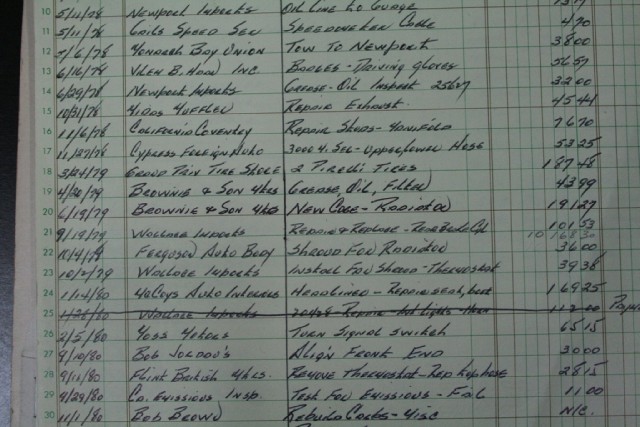 10 5/11/78 Newport Imports Oil Line to Guage
11 5/11/78 Gails Speed Ser Speedometer Cable 4.70
12 5/6/78 Monarch Bay Union Tow To Newport 38.00
13 6/16/78 Vilem B. Haan Inc. Badges - Driving Gloves 56.57
14 6/29/78 Newport Imports Grease - Oil Inspect 32.00
15 10/31/78 Midas Muffler Repair Exhaust. 45.44
16 11/6/78 California Coventry Repair Studs - Manifold 76.70
17 11/27/78 Cypress Foreign Auto Upper/Lower Hose 53.25
18 3/24/79 Grand Prix Tire Store 2 Pirelli Tires 187.48
19 4/20/79 Brownie & Son Mtrs Grease, Oil, Filter 43.99
20 6/19/79 Brownie & Son Mtrs New Core - Radiator 191.27
21 9/19/79 Wallace Imports Repair & Replace - 101.53
22 10/4/79 Ferguson Auto Body Shroud For Radiator 36.00
23 10/2/79 Wallace Imports Install Fan Shroud - Thermostat 39.38
24 1/14/80 McCoys Auto Interiors Headliner - Repair seat, boot 169.25
25 1/28/80 Wallace Imports Repair Lights - Horn 112.00
26 2/5/80 Moss Motors Turn Signal Switch 65.15
27 9/10/80 Bob Jordon's Align Front End 30.00
28 9/11/80 Flint British Mtrs. Remove Thermostat - Rep Hose 28.15
29 9/29/80 Ca. Emissions Insp. Test For Emissions - Fail 11.00
30 11/1/80 Bob Brown Rebuild Carbs - Misc N/C.